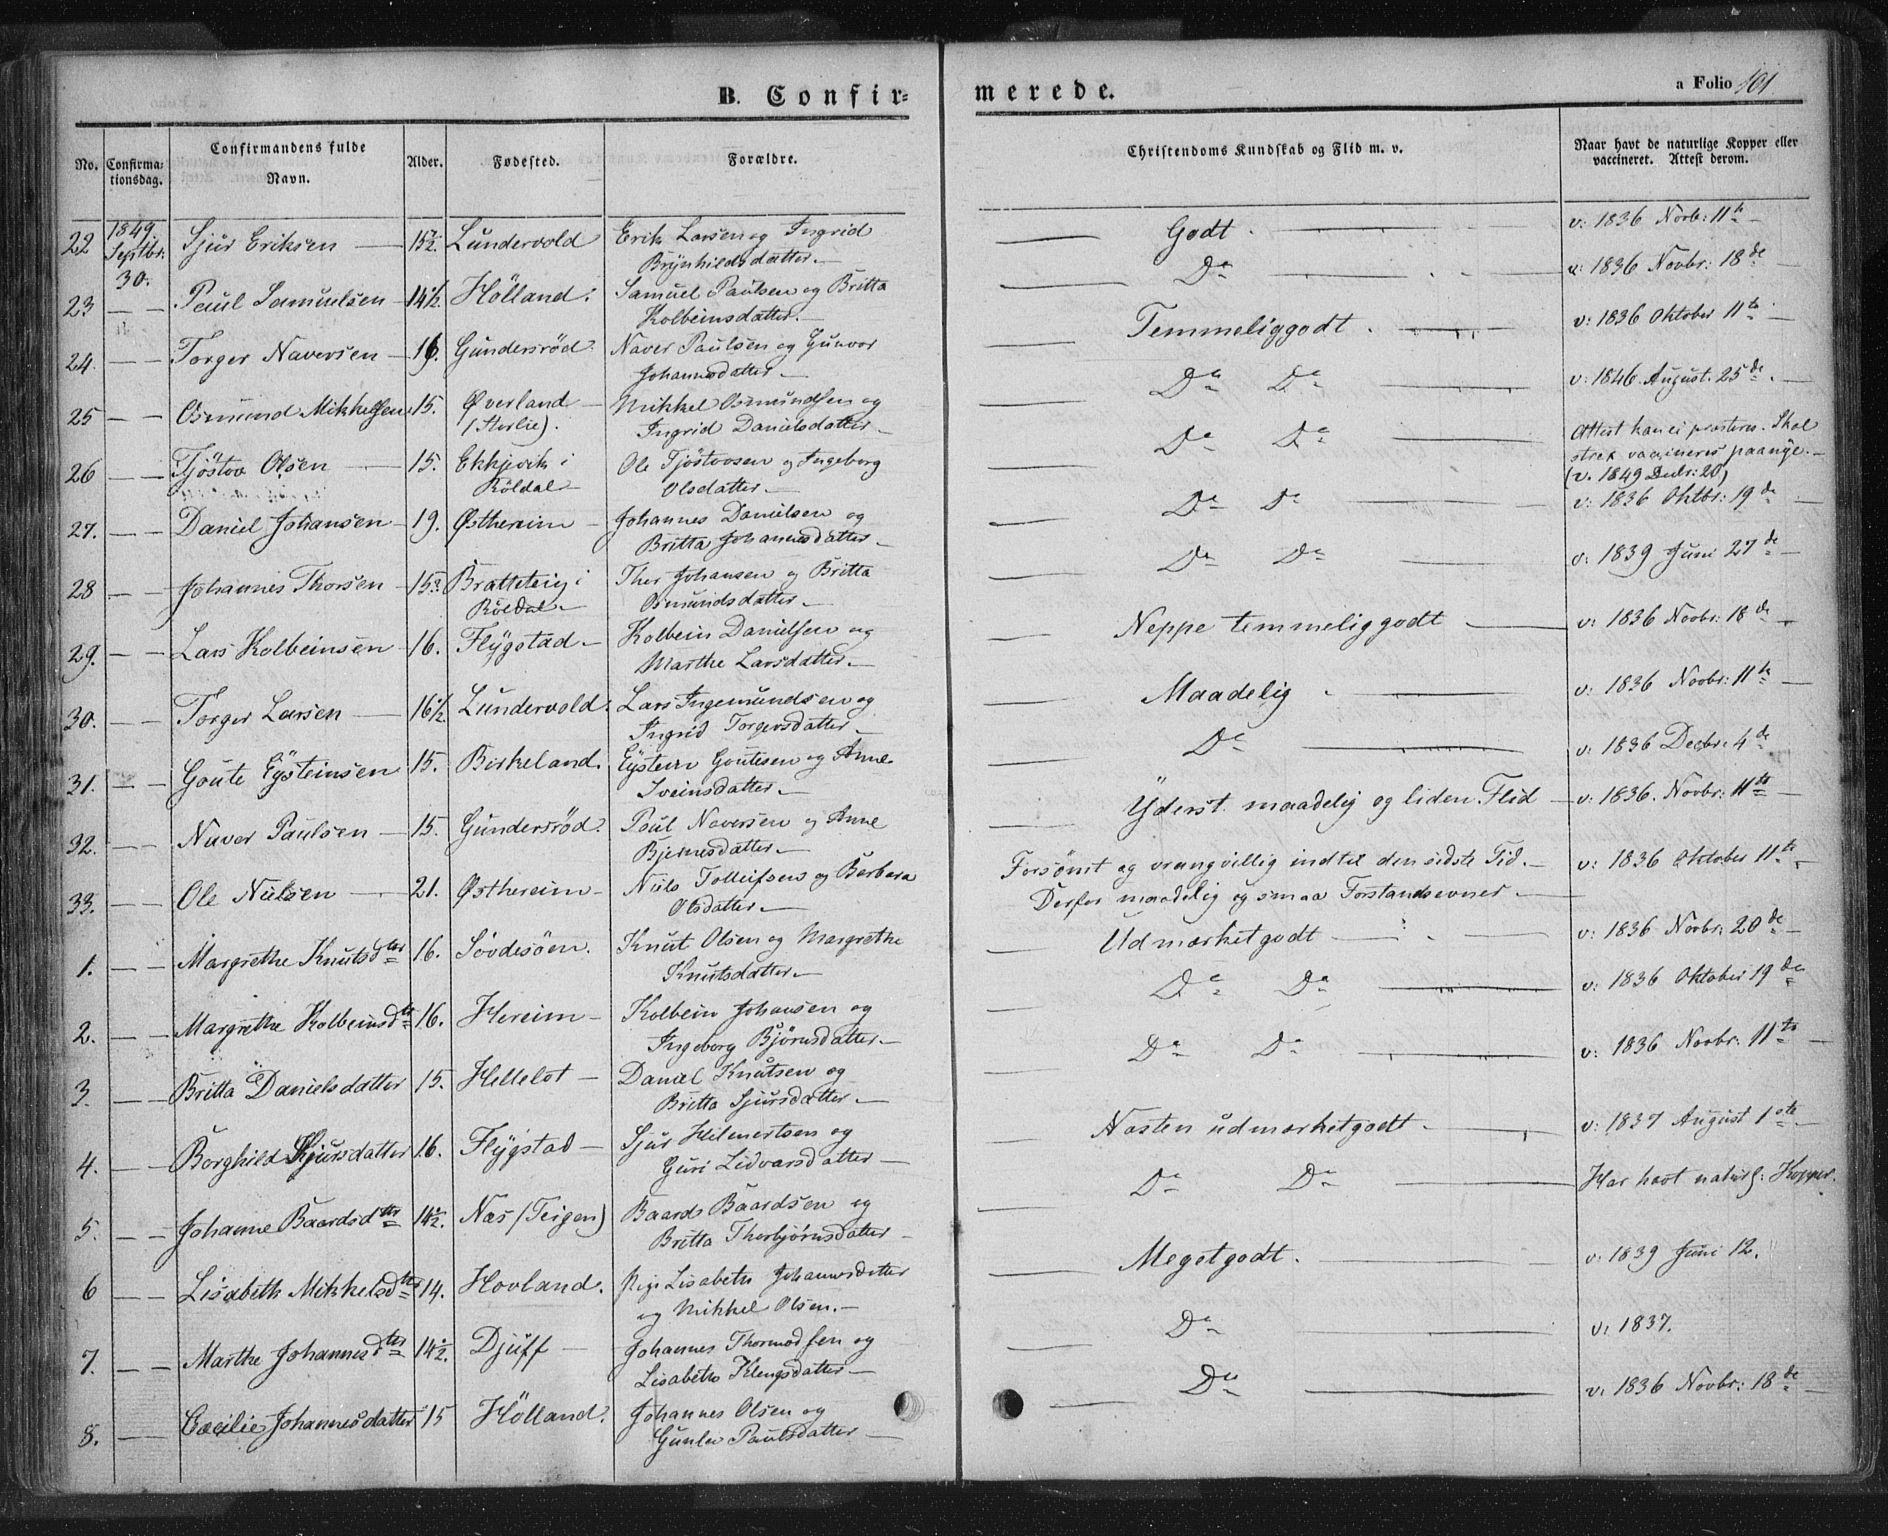 B. Confir=
merede.
a Folio 101
No.
Confirma=
tionsdag.
Confirmandens fulde
Navn.
Alder.
Fødested.
Forældre.
Christendoms Kundskab og Flid m. v.
Naar havt de naturlige Kopper eller
vaccineret. Attest derom.
22 1849 Septbr: 30. Sjur Eriksen 15½. Lundervold Erik Larsen og Ingrid
Brynhildsdatter. Godt. v: 1836 Novb: 11te
23 Paul Samuelsen 14½ Hölland. Samuel Paulsen og Britta
Kolbeinsdatter. Do v: 1836 Novbr: 18de
24. Torger Naversen 16. Gundersröd. Naver Paulsen og Gunvor
Johannesdatter. Temmeliggodt. v: 1836 Oktober 11te
25 Osmund Mikkelsen 15. Øverland Mikkel Osmundsen og
Ingrid Danielsdatter. Do Do v: 1846 August. 25de.
26 Tjöstov Olsen 15. Ekkjevik i
Röldal Ole Tjöstovsen og Ingeborg
Olsdatter. Do Do Attest kan ei præsteres. Skal
strax vaccineres paany.
(v. 1849 Decbr: 20)
27. Daniel Johansen 19. Østhereim Johannes Danielsen og
Britta Johannesdatter. Do Do v: 1836 Oktbr: 19de
28 Johannes Thorsen 15. Bratteteig i
Röldal Thor Johansen og Britta
Osmundsdatter. Do Do v: 1839 Juni 27de
29. Lars Kolbeinsen 16. Flÿgstad Kolbein Danielsen og
Marthe Larsdatter. Neppe temmeliggodt v: 1836 Novbr: 18de
30. Torger Larsen 16½ Lundervold. Lars Ingemundsen og
Ingrid Torgersdatter. Maadelig v: 1836 Novbr: 11te
31. Goute Eÿsteinsen 15. Birkeland. Eÿstein Goutesen og Anne
Sveinsdatter. Do v: 1836 Decbr: 4de
32. Naver Paulsen 15. Gundersröd. Paul Naversen og Anne
Bjernesdatter. Yderst maadelig og liden Flid v: 1836. Novbr: 11te
33. Ole Nielsen 21. Østhereim Niels Tolleifsen og Barbara
Olsdatter. Forsömt og vrangvillig indtil den sidste Tid.
Derfor maadelig og smaa Forstandsevner v: 1836 Oktober 11te
1. Margrethe Knutsdtr 16. Sövdesöen. Knut Olsen og Margrethe
Knutsdatter. Udmærketgodt v: 1836 Novbr: 20de
2. Margrethe Kolbeinsdtr 16. Hereim Kolbein Johansen og
Ingeborg Björnsdatter. Do Do v: 1836 Oktober 19de
3. Britta Danielsdatter 15. Helleløt Daniel Knutsen og
Britta Sjursdatter. Do Do v: 1836 Novbr: 11te
4. Borghild Sjursdatter 16. Flÿgstad Sjur Helmertsen og
Guri Lidvarsdatter Næsten udmærketgodt. v: 1837 August 1ste
5. Johanne Baardsdtr 14½. Næs (Teigen) Baard Baardsen og
Britta Thorbjörnsdatter Do Do Har havt naturl: Kopper.
6 Lisabeth Mikkelsdtr 14. Hovland. Pige Lisabeth Johannesdatter
og Mikkel Olsen. Megetgodt. v: 1839 Juni 12.
7. Marthe Johannesdtr 14½. Djuff Johannes Thormodsen og
Lisabeth Klengsdatter Do v: 1837.
8. Cecilie Johannesdatter 15 Hölland. Johannes Olsen og
Gunla Paulsdatter Do v: 1836 Novbr: 18de